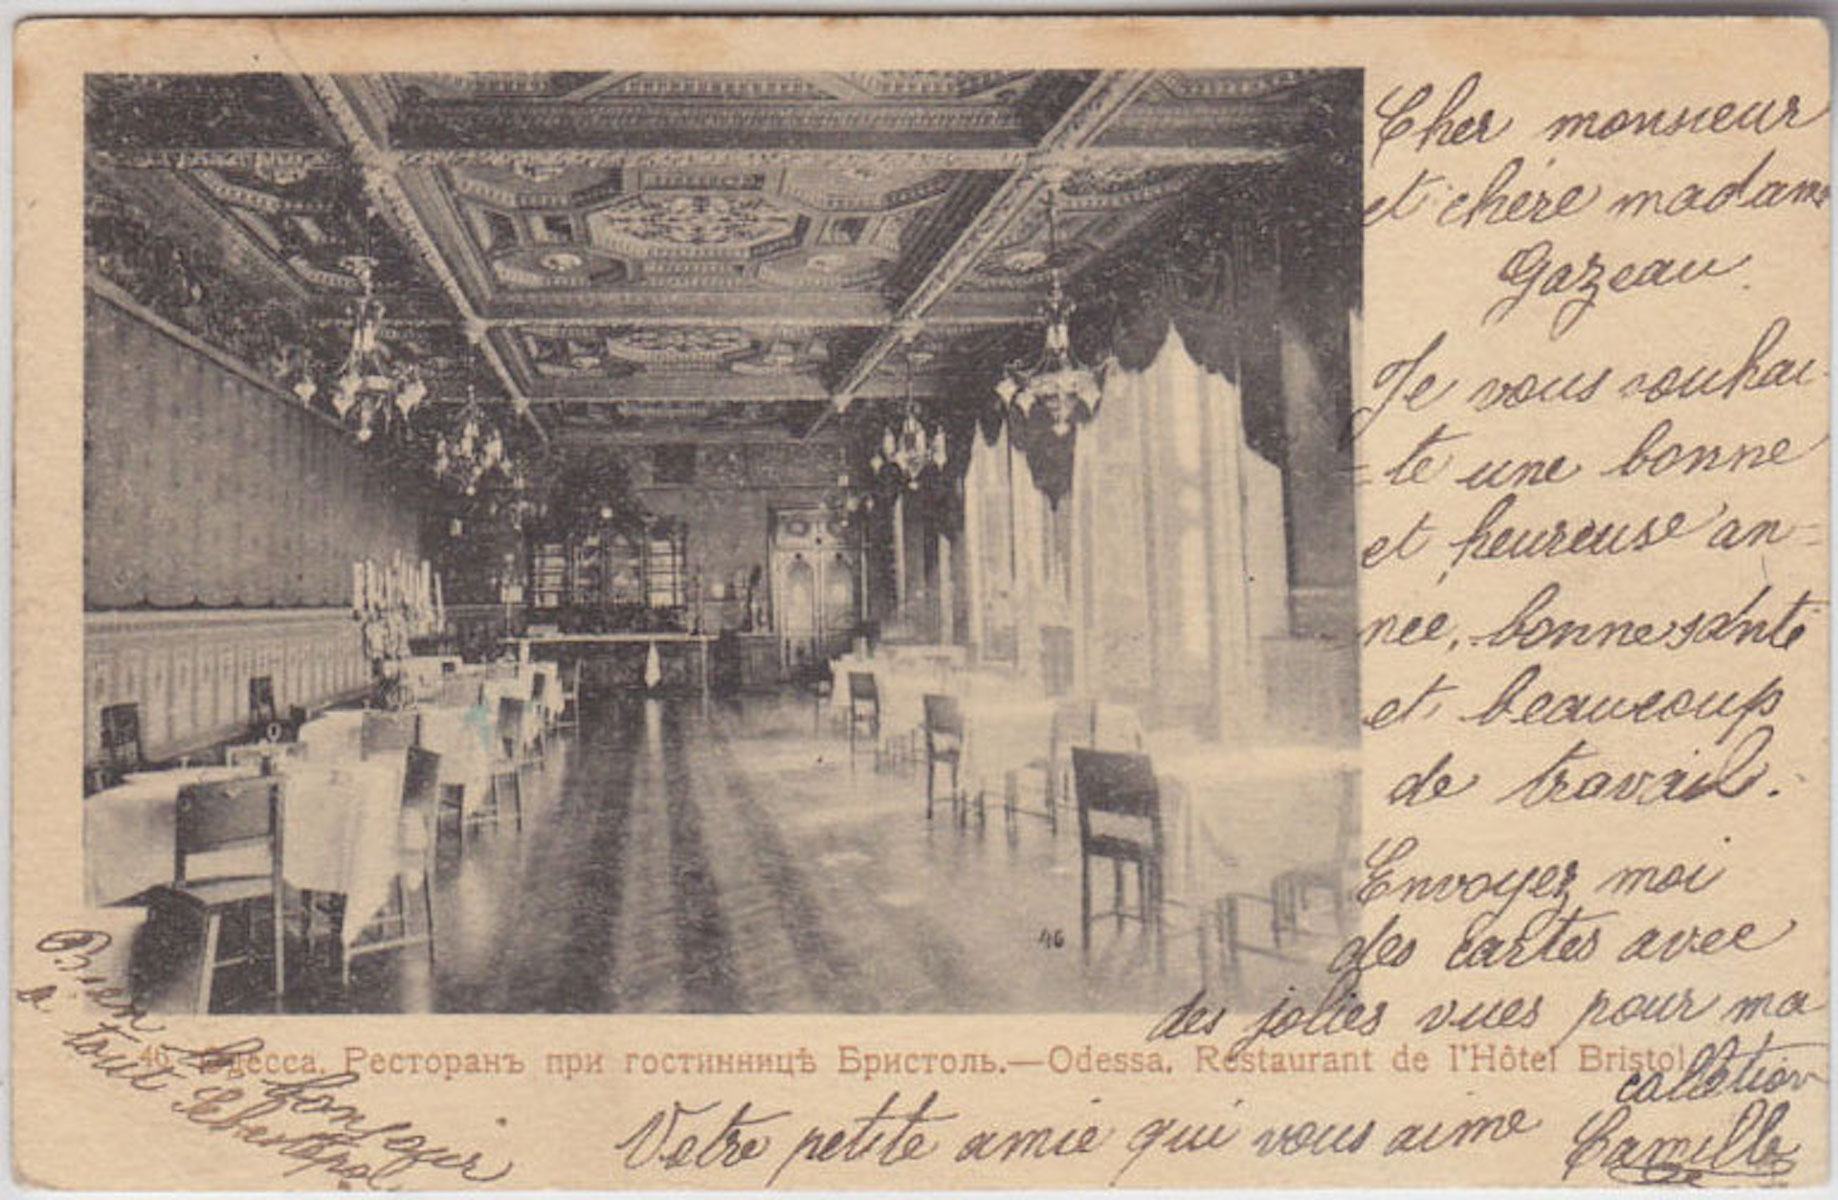 Cher monsieur
et chère madame
Gazeau.
Je vous souhai-
-te une bonne
et heureuse an-
née, bonne santé
et beaucoup
de travail.
Envoyez moi
des cartes avec
des jolies vues pour ma
colletion
Votre petite amie qui vous aime
Camille
Bien le bonjour
a tout Sebastopol.
46
46. Одесса. Ресторанъ при гостинницѣ Бристоль.—Odessa. Restaurant de l'Hôtel Bristol.